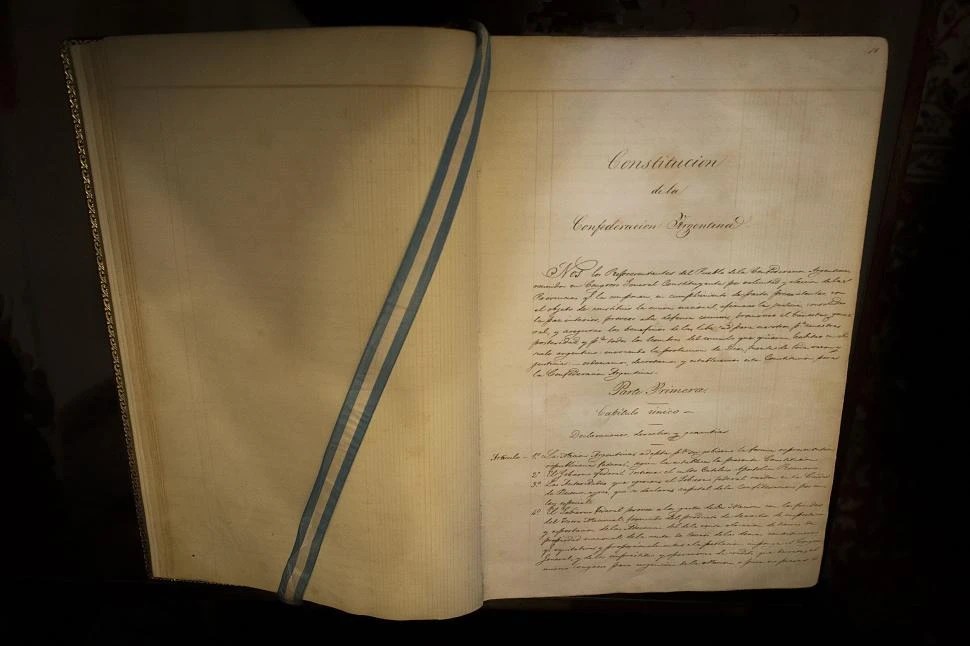 Constitucion
de la
Confederacion Argentina
Nos los Representantes del Pueblo de la Confederacion Argentina,
reunidos en Congreso General Constituyente por voluntad y eleccion de las
Provincias q. la componen, en cumplimiento de pactos preexistentes, con
el objeto de constituir la union nacional, afianzar la justicia, consolidar
la paz interior, proveer a la defensa comun, promover el bienestar gene
ral, y asegurar los beneficios de la libertad para nosotros pa. nuestra
posteridad y pa. todos los hombres del mundo que quieran habitar en el
suelo argentino: invocando la proteccion de Dios, fuente de toda razon y
justicia: ordenamos, decretamos y establecemos esta Constitucion para
la Confederacion Argentina.
Parte Primera.
Capítulo único
Declaraciones, derechos y garantias
Articulo 1º La Nacion Argentina adopta pa. su gobierno la forma representativa
republicana federal; segun la establece la presente Constitucion.
2º El Gobierno Federal sostiene el culto Catolico Apostolico Romano.
3º Las Autoridades que ejercen el Gobierno federal residen en la Ciudad
de Buenos ayres, que se declara capital de la Confederacion por una
ley especial.
4º El Gobierno federal provee a los gastos de la Nacion con los fondos
del Tesoro Nacional, formado del producto de derechos de importacion
y exportacion de las Aduanas
propiedad nacional, de la renta de Correos, de las demas contribuciones
q. equitativa y proporcionalmente a la poblacion imponga el Congreso
General, y de los empréstitos y operaciones de credito que decrete el
mismo Congreso para urgencias de la Nacion o para empresas